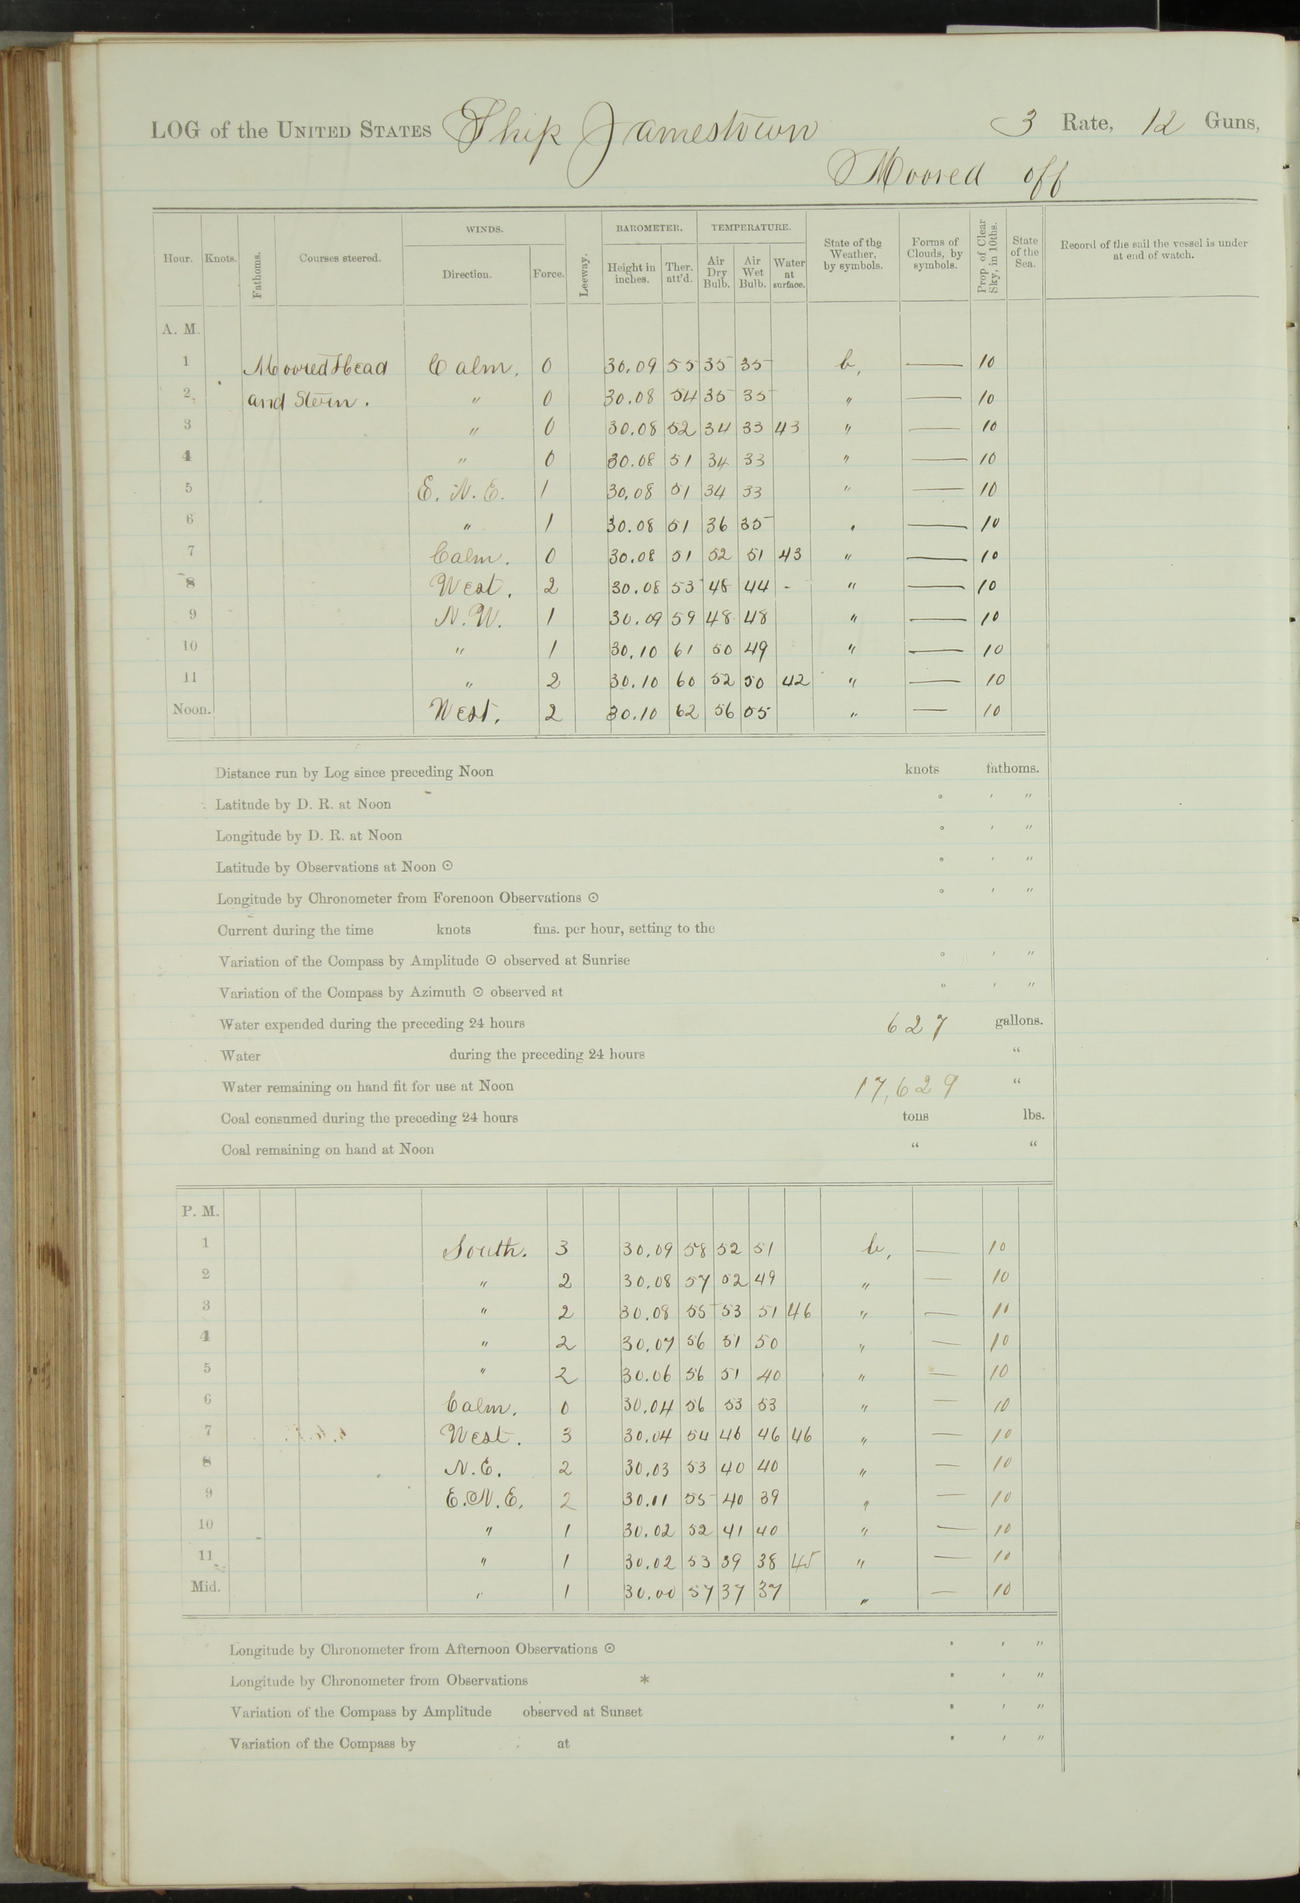 LOG of the UNITED STATES Ship Jamestown 3 Rate, 12 Guns,
Moored off
WINDS. BAROMETER. TEMPERATURE.
Hour. Knots. Fathoms. Courses steered. Direction. Force. Leeway. Height in inches. Ther. att'd. Air Dry Bulb. Air Wet Bulb. Water at surface. State of the Weather, by symbols. Forms of Clouds, by symbols. Prop. of Clear Sky, in 10ths. State of the Sea. Record of the sail the vessel is under at end of watch.
A. M.
1 Moored Head Calm. 0 30.09 55 35 35 b, — 10
2 and Stern. " 0 30.08 54 35 35 " — 10
3 " 0 30.08 52 34 33 43 " — 10
4 " 0 30.08 51 34 33 " — 10
5 E. N. E. 1 30.08 51 34 33 " — 10
6 " 1 30.08 51 36 35 " — 10
7 Calm. 0 30.08 51 52 51 43 " — 10
8 West. 2 30.08 53 48 44 - " — 10
9 N. W. 1 30.09 59 48 48 " — 10
10 " 1 30.10 61 50 49 " — 10
11 " 2 30.10 60 52 50 42 " — 10
Noon. West. 2 30.10 62 56 55 " — 10
Distance run by Log since preceding Noon knots fathoms.
Latitude by D. R. at Noon ° ' "
Longitude by D. R. at Noon ° ' "
Latitude by Observations at Noon ⊙ ° ' "
Longitude by Chronometer from Forenoon Observations ⊙ ° ' "
Current during the time knots fms. per hour, setting to the
Variation of the Compass by Amplitude ⊙ observed at Sunrise ° ' "
Variation of the Compass by Azimuth ⊙ observed at ° ' "
Water expended during the preceding 24 hours 627 gallons.
Water during the preceding 24 hours "
Water remaining on hand fit for use at Noon 17,629 "
Coal consumed during the preceding 24 hours tons lbs.
Coal remaining on hand at Noon " "
P. M.
1 South. 3 30.09 58 52 51 b, — 10
2 " 2 30.08 57 52 49 " — 10
3 " 2 30.08 55 53 51 46 " — 10
4 " 2 30.07 56 51 50 " — 10
5 " 2 30.06 56 51 40 " — 10
6 Calm. 0 30.04 56 53 53 " — 10
7 West. 3 30.04 54 46 46 46 " — 10
8 N. E. 2 30.03 53 40 40 " — 10
9 E. N. E. 2 30.11 55 40 39 " — 10
10 " 1 30.02 52 41 40 " — 10
11 " 1 30.02 53 39 38 45 " — 10
Mid. " 1 30.00 57 37 37 " — 10
Longitude by Chronometer from Afternoon Observations ⊙ ° ' "
Longitude by Chronometer from Observations * ° ' "
Variation of the Compass by Amplitude observed at Sunset ° ' "
Variation of the Compass by at ° ' "